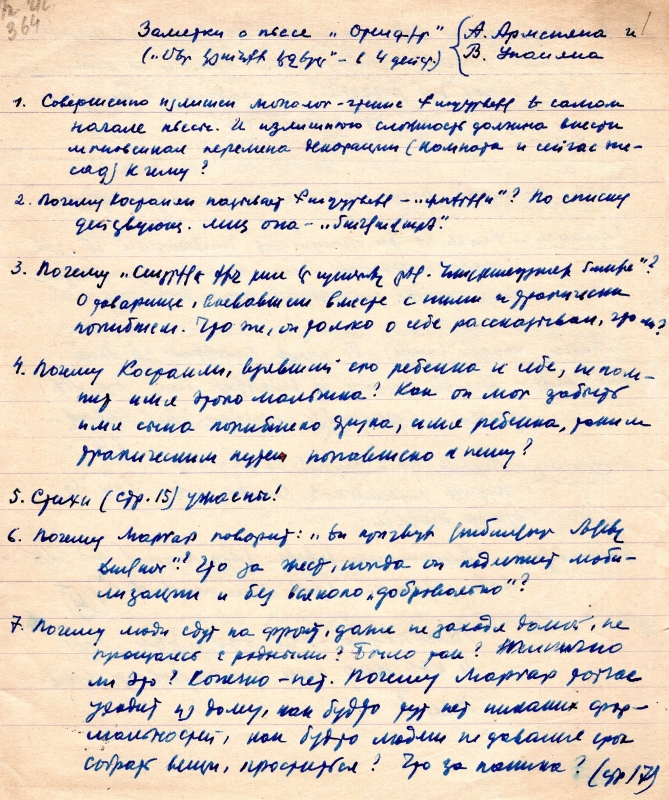 364
Заметки о пьесе „
А. Арменяна и
В. Унаняна
1. Совершенно излишен монолог-чтение в самом
начале пьесы. И излишнюю сложность должна внести
мгновенная перемена декорации (комната и сейчас же
сад) к чему?
2. Почему Костанян называет По списку
действующ. лиц она –
3. Почему
О товарище, воевавшем вместе с ними и трагически
погибшем. Что же, он только о себе рассказывал, что ли?
4. Почему Костанян, взявший его ребенка к себе, не пом-
нит имя этого мальчика? Как он мог забыть
имя сына погибшего друга, имя ребенка, таким
трагическим путем попавшего к нему?
5. Стихи (стр. 15) ужасны!
6. Почему Маргар говорит:
Что за жест, когда он подлежит моби-
лизации и без всякого „добровольно"?
7. Почему люди едут на фронт, даже не заходя домой, не
прощаясь с родными? Было так? Типично
ли это? Конечно – нет. Почему Маргар тотчас
уходит из дому, как будто тут нет никаких фор-
мальностей, как будто людям не давали срок
собрать вещи, проститься? Что за паника? (стр 17)